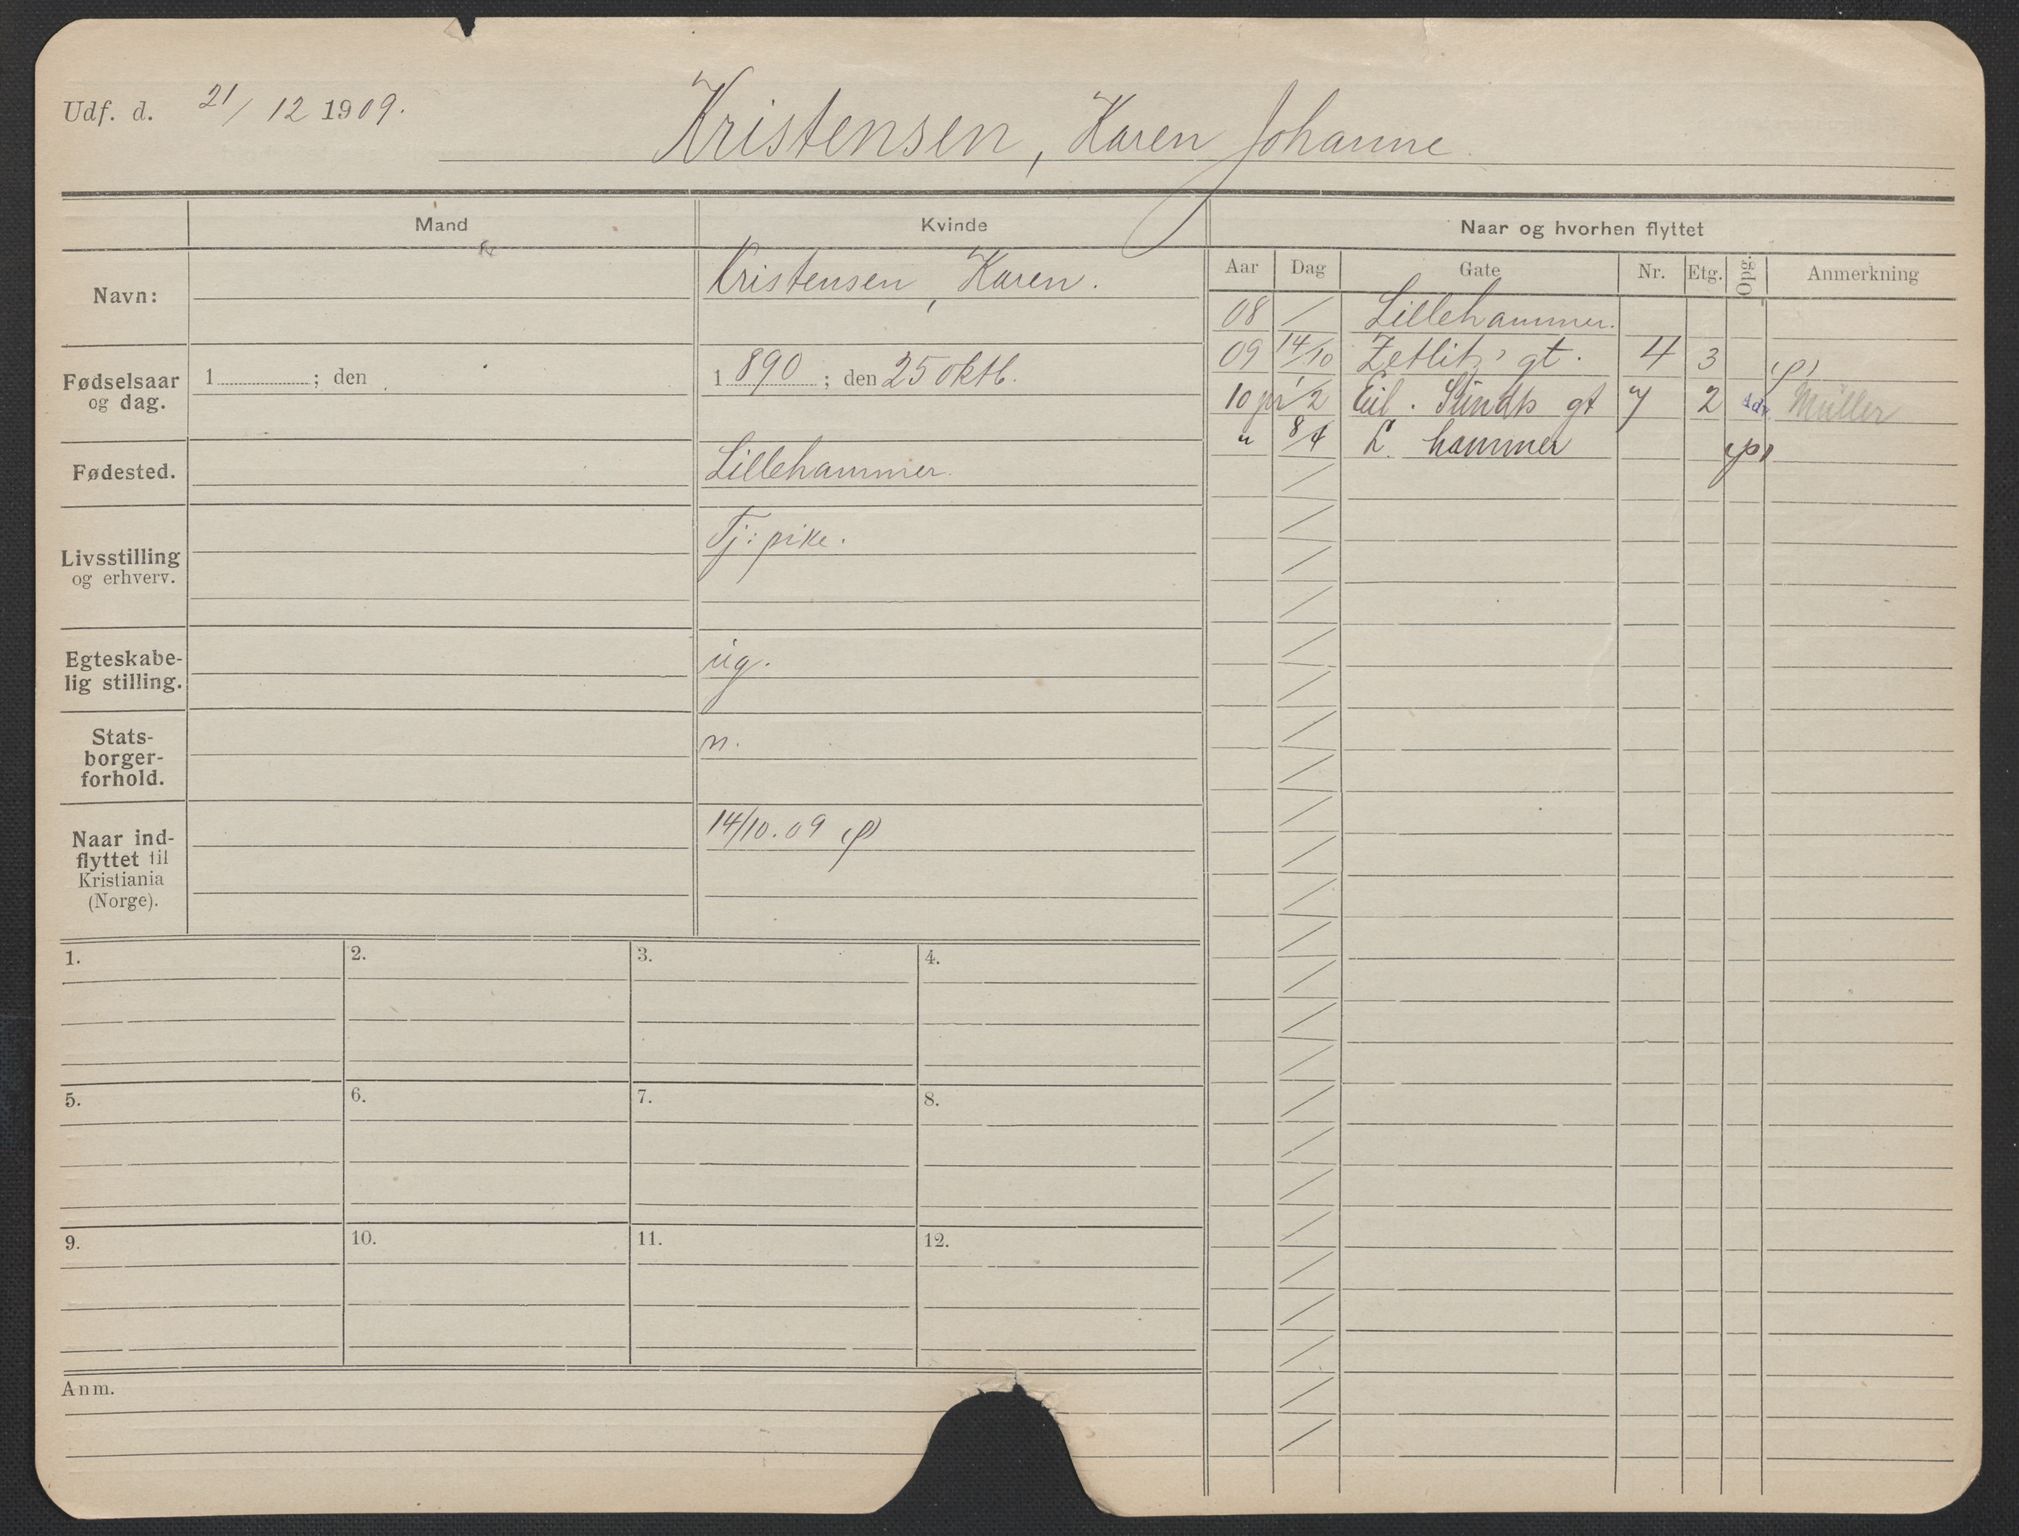 Udf. d. 21/12 1909.
Kristensen, Karen Johanne
Mand
Kvinde
Naar og hvorhen flyttet
Navn:
Kristensen, Karen.
Fødselsaar og dag.
1 ; den
1 890 ; den 25 oktb.
Fødested.
Lillehammer.
Livsstilling og erhverv.
Tj: pike.
Egteskabe-
lig stilling.
ug.
Stats-
borger-
forhold.
n.
Naar ind-
flyttet til
Kristiania
(Norge).
14/10.09 (p)
Aar Dag Gate Nr. Etg. Opg. Anmerkning
08 / Lillehammer.
09 14/10 Zetlitz' gt. 4 3 (p)
10 pr 1/2 Eil. Sundts gt 7 2 Adv. Müller
" 8/4 L. hammer (p)
1. 2. 3. 4.
5. 6. 7. 8.
9. 10. 11. 12.
Anm.